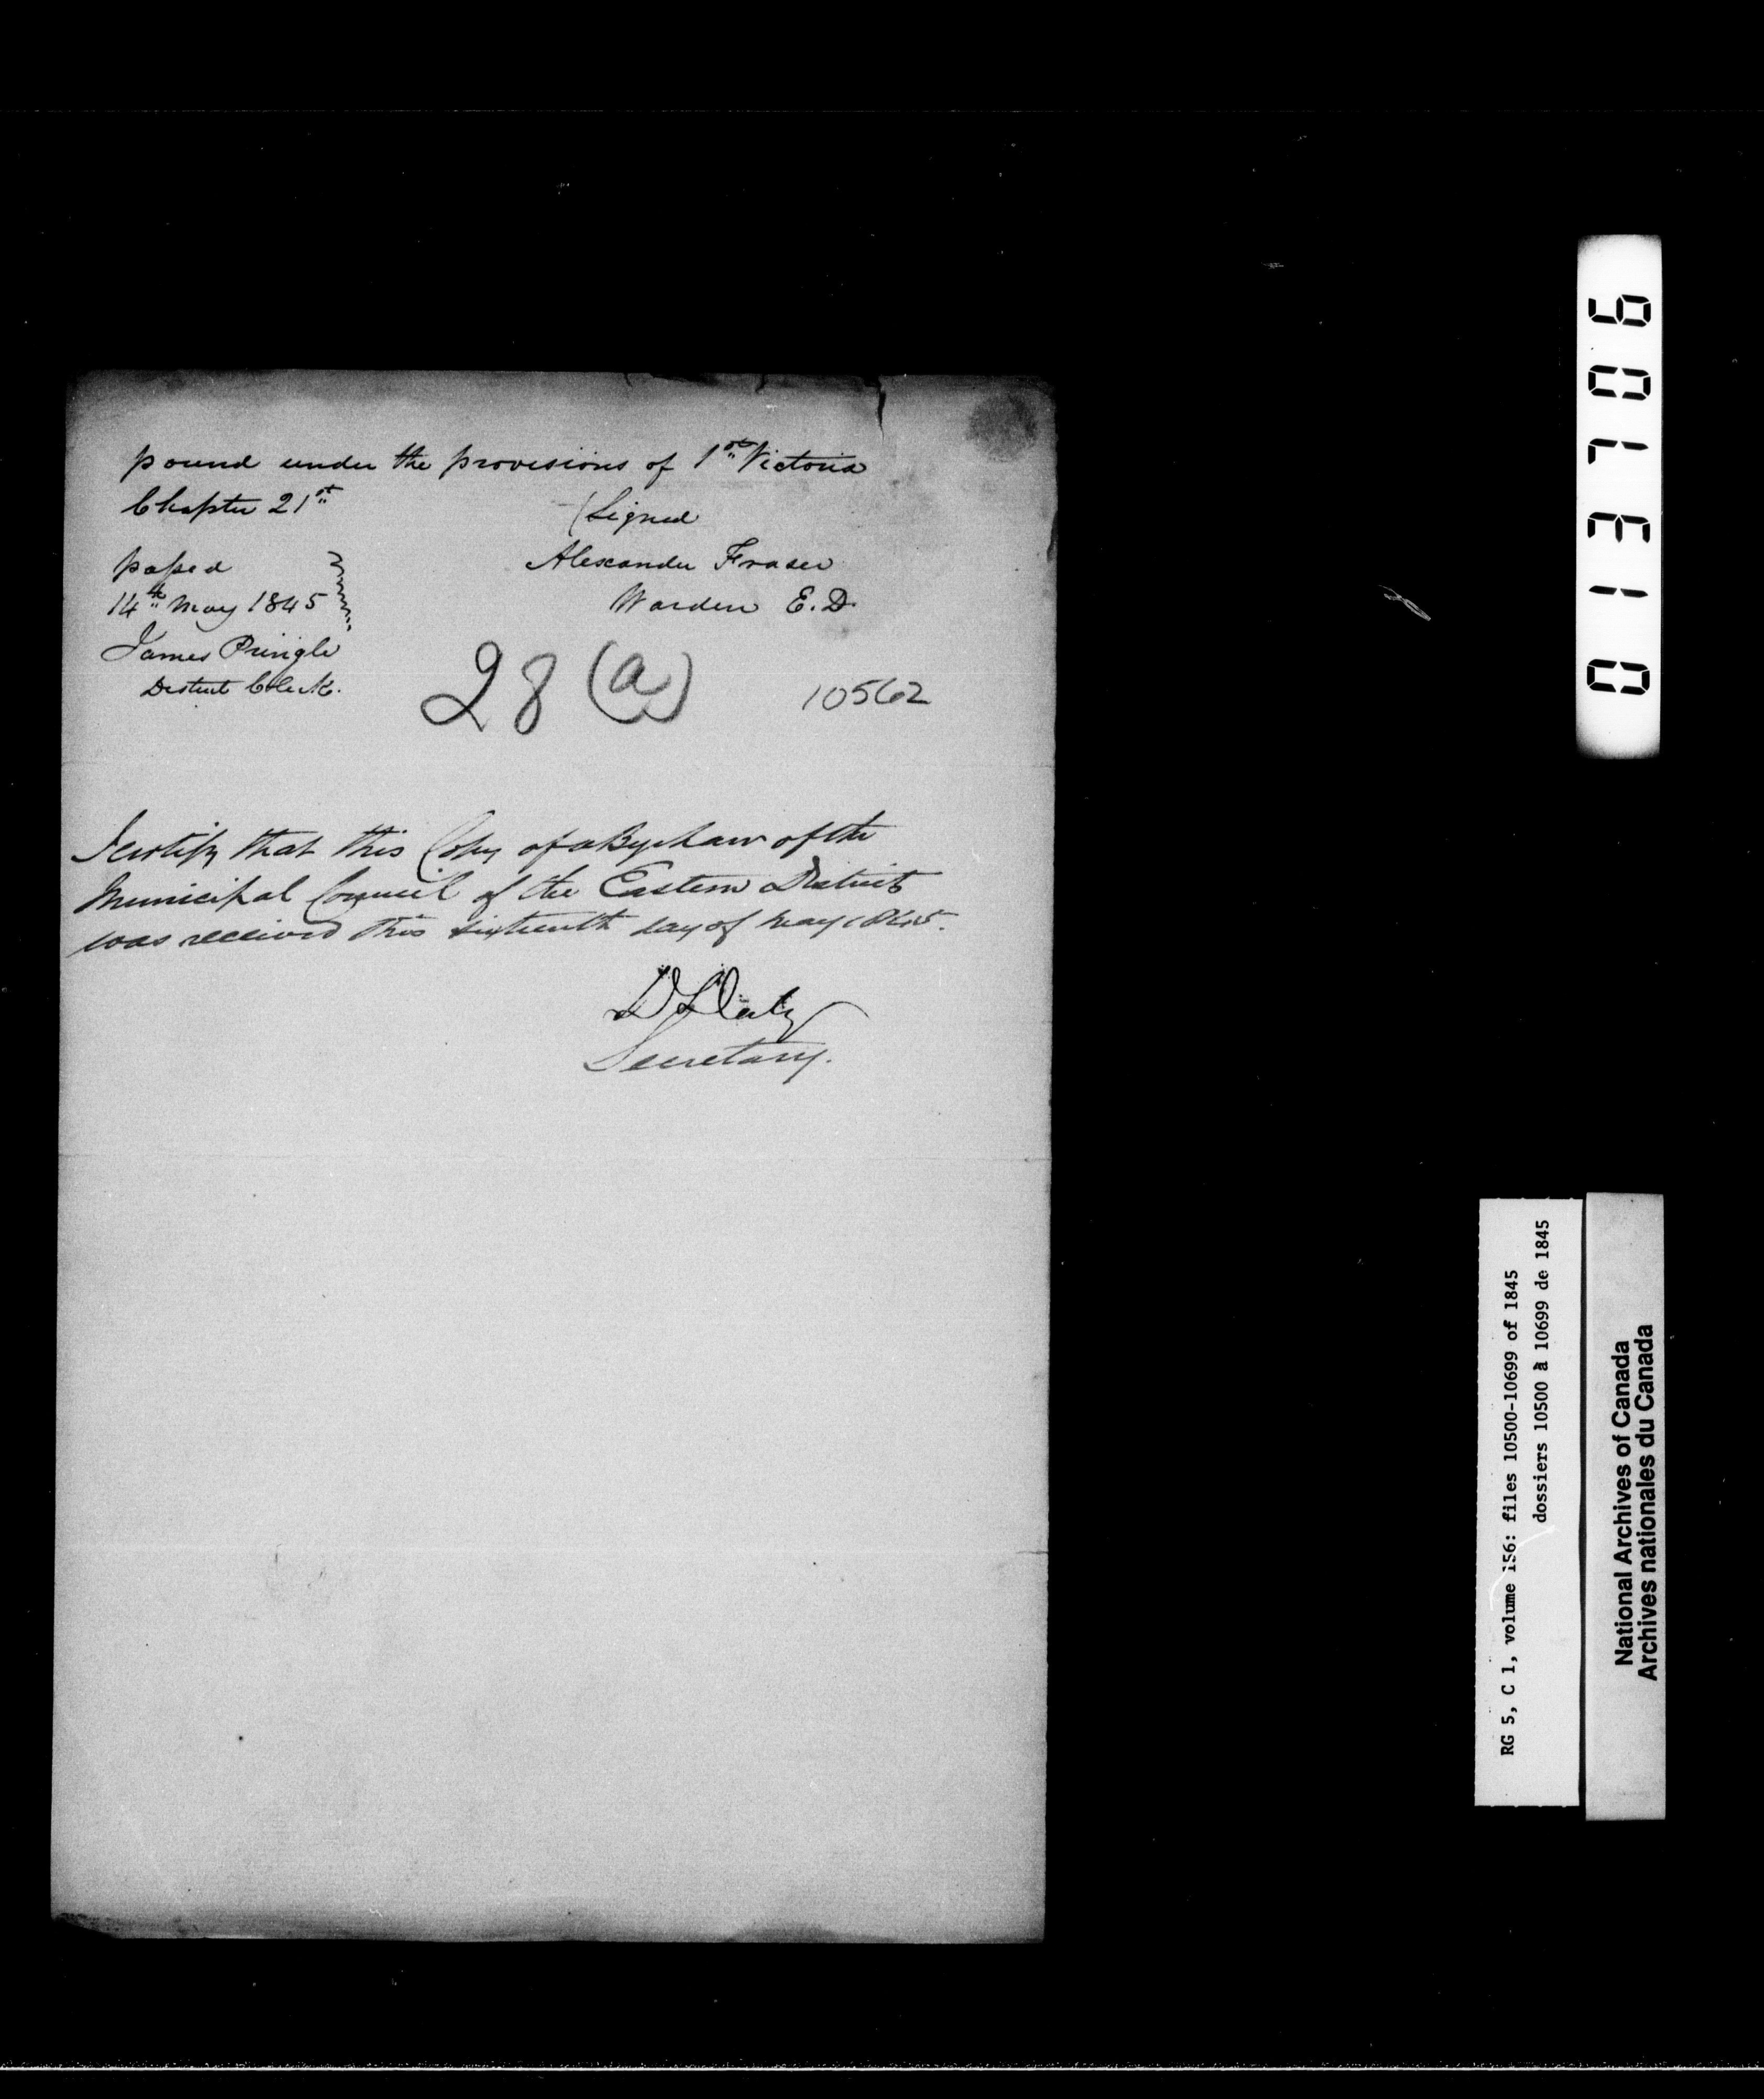 pound under the provisions of 1st Victoria
Chapter 21st
(Signed
passed
Alexander Fraser
14th May 1845
Warden E. D.
James Pringle
District Clerk.
28 (a)
10562
I certify that this Copy of a Bye Law of the
Municipal Council of the Eastern District
was received this sixteenth day of May 1845.
D Daly
Secretary.
013706
RG 5, C 1, volume 156: files 10500-10699 of 1845
dossiers 10500 à 10699 de 1845
National Archives of Canada
Archives nationales du Canada